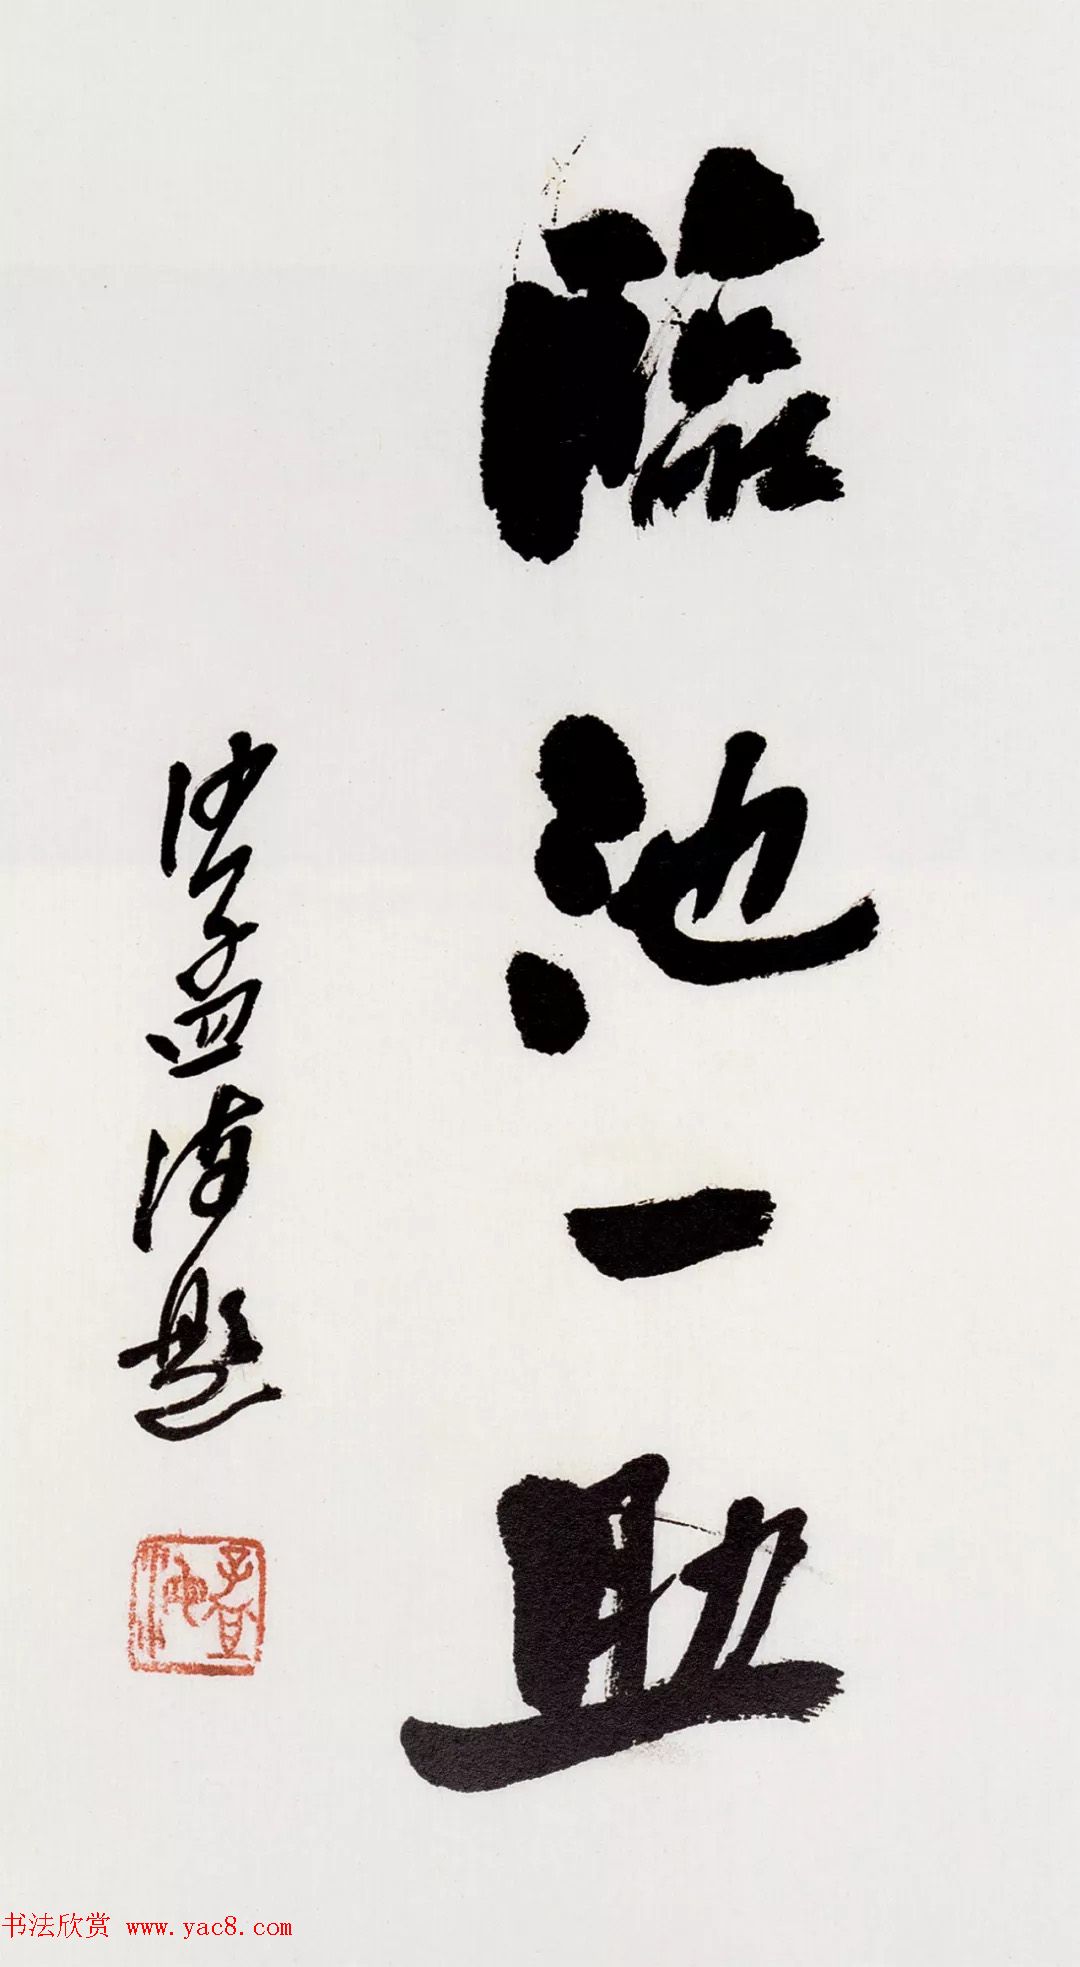 臨池一助
沙孟海題
书法欣赏 www.yac8.com